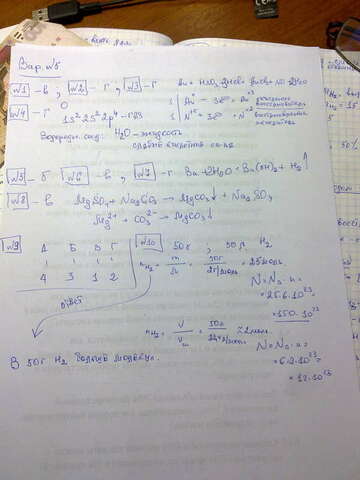 Вар. №5
№1 - в; №2 - г; №3 - г
№4 - г
O
1s² 2s² 2p⁴ - газ
Водородн. соед: H₂O - жидкость
слабые кислотн св-ва
№5 - б №6 - в; №7 - г Ba + 2H₂O = Ba(OH)₂ + H₂↑
№8 - в MgSO₄ + Na₂CO₃ → MgCO₃↓ + Na₂SO₄
Mg²⁺ + CO₃²⁻ → MgCO₃↓
№9 А Б В Г
4 3 1 2
ответ
№10 50г ; 50л H₂
nH₂ = m/M = 50г/2г/моль = 25моль
N = Nₐ · n =
= 25·6·10²³ =
= 150·10²³
nH₂ = V/Vm = 50л
≈ 2моль
N = Nₐ · n =
= 6·2·10²³ =
= 12·10²³
В 50г H₂ больше молекул.